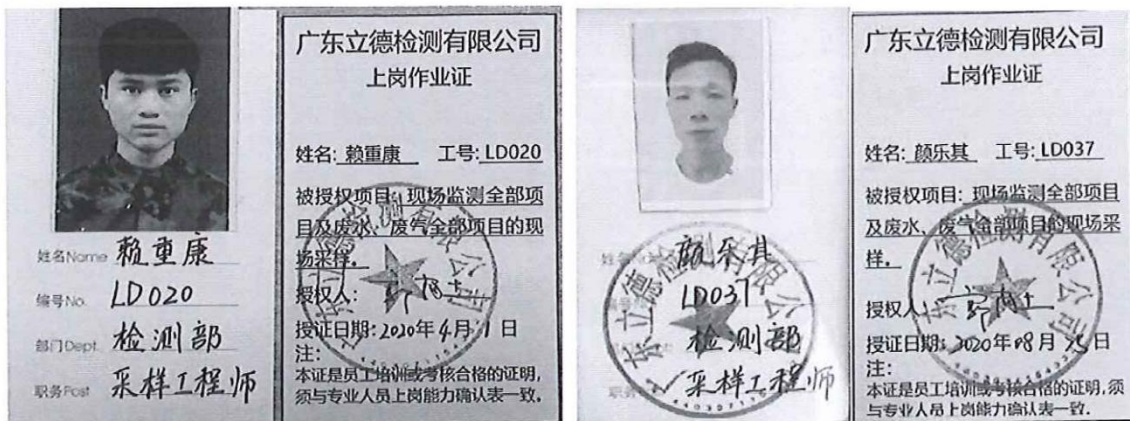 姓名Name 赖重康
编号No. LD020
部门Dept. 检测部
职务Post 采样工程师
广东立德检测有限公司
上岗作业证
姓名: 赖重康 工号: LD020
被授权项目: 现场监测全部项
目及废水、废气全部项目的现
场采样。
授权人:
授证日期: 2020年4月1日
注:
本证是员工培训或考核合格的证明,
须与专业人员上岗能力确认表一致。
颜乐其
LD037
检测部
采样工程师
东立德检测有限公司
广东立德检测有限公司
上岗作业证
姓名: 颜乐其 工号: LD037
被授权项目: 现场监测全部项目
及废水、废气全部项目的现场采
样。
授权人:
授证日期: 2020年08月 日
注:
本证是员工培训或考核合格的证明,须
与专业人员上岗能力确认表一致.